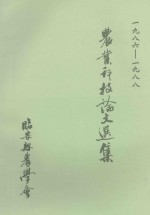 一九八六—一九八八
農業科技論文選集
临安县農學會